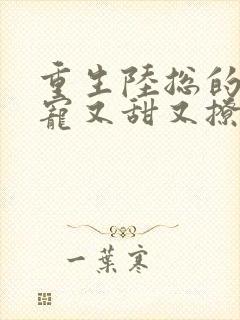 重生陸總的
寵又甜又撩
一葉寒